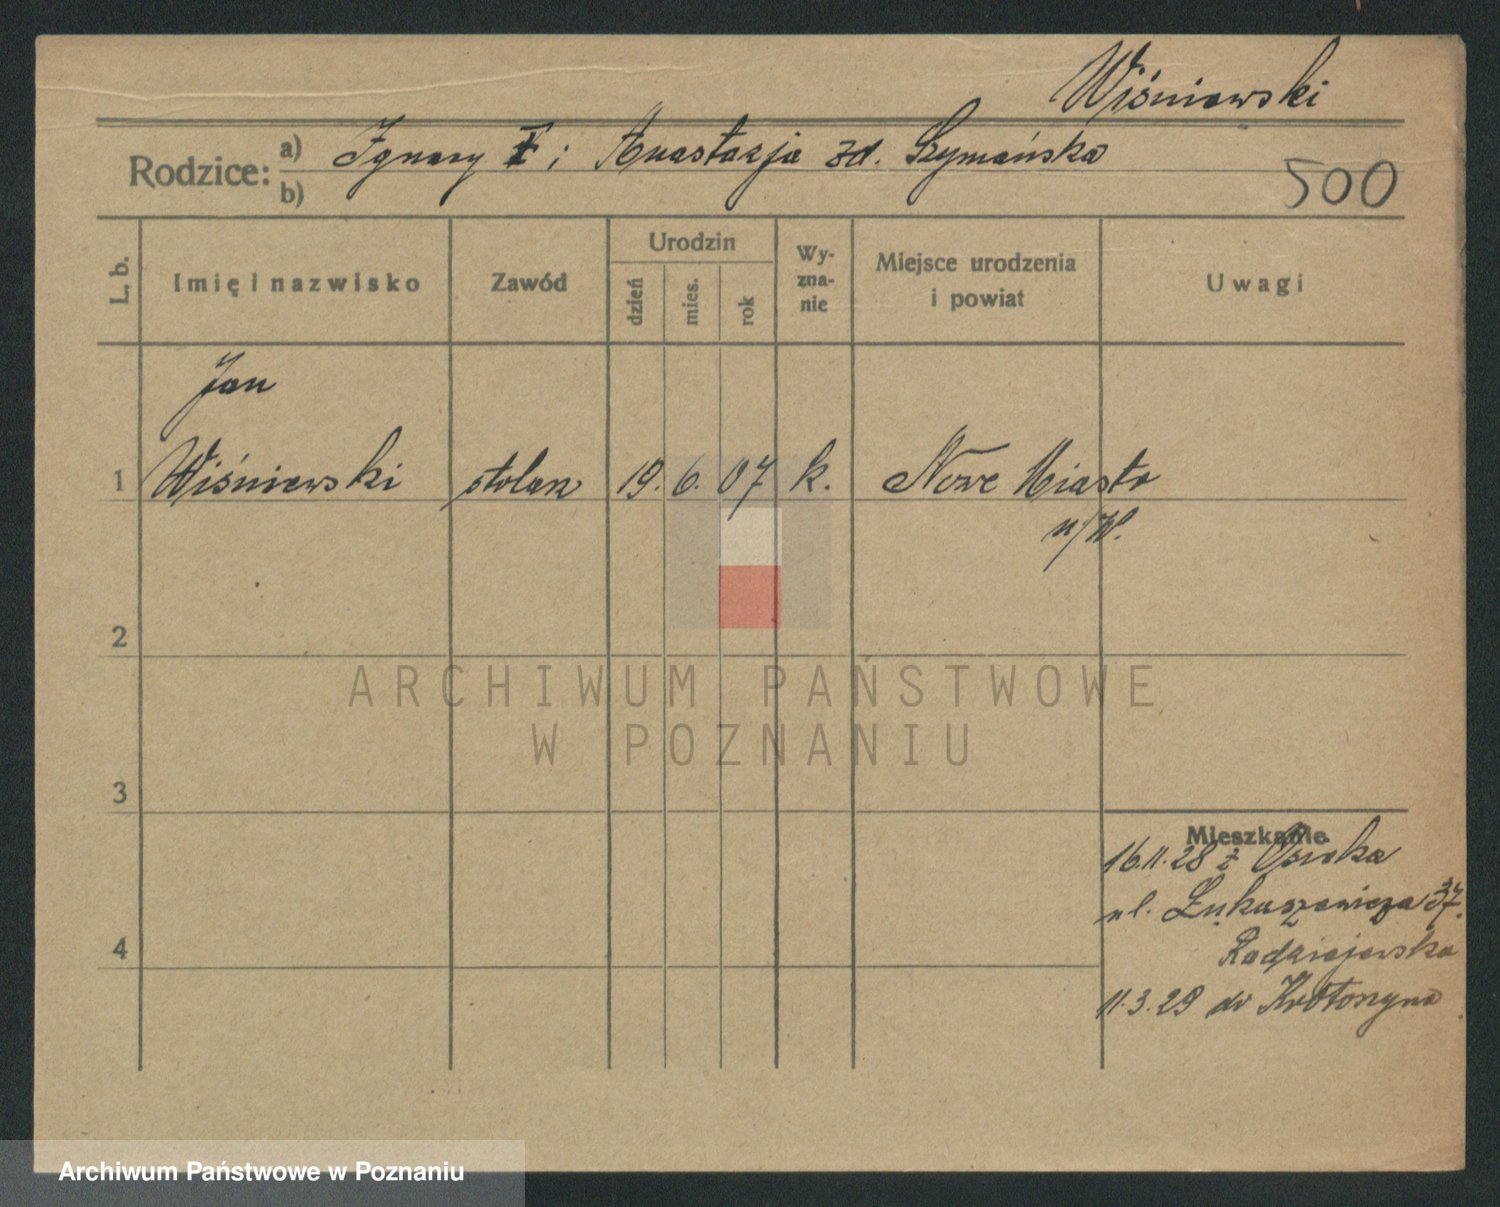 Wiśniewski
Rodzice: a) Ignacy i Anastazja zd. Szymańska
b)
500
L. b. Imię i nazwisko Zawód Urodzin dzień mies. rok Wyznanie Miejsce urodzenia i powiat Uwagi
Jan
1 Wiśniewski stolarz 19. 6. 07 k. Nowe Miasto
n/W.
2
ARCHIWUM PAŃSTWOWE
W POZNANIU
3
Mieszkanie
16.11.28 z
4
ul. Łukaszewicza 37.
Radziejewska
11.3.29 do Krotoszyna
Archiwum Państwowe w Poznaniu